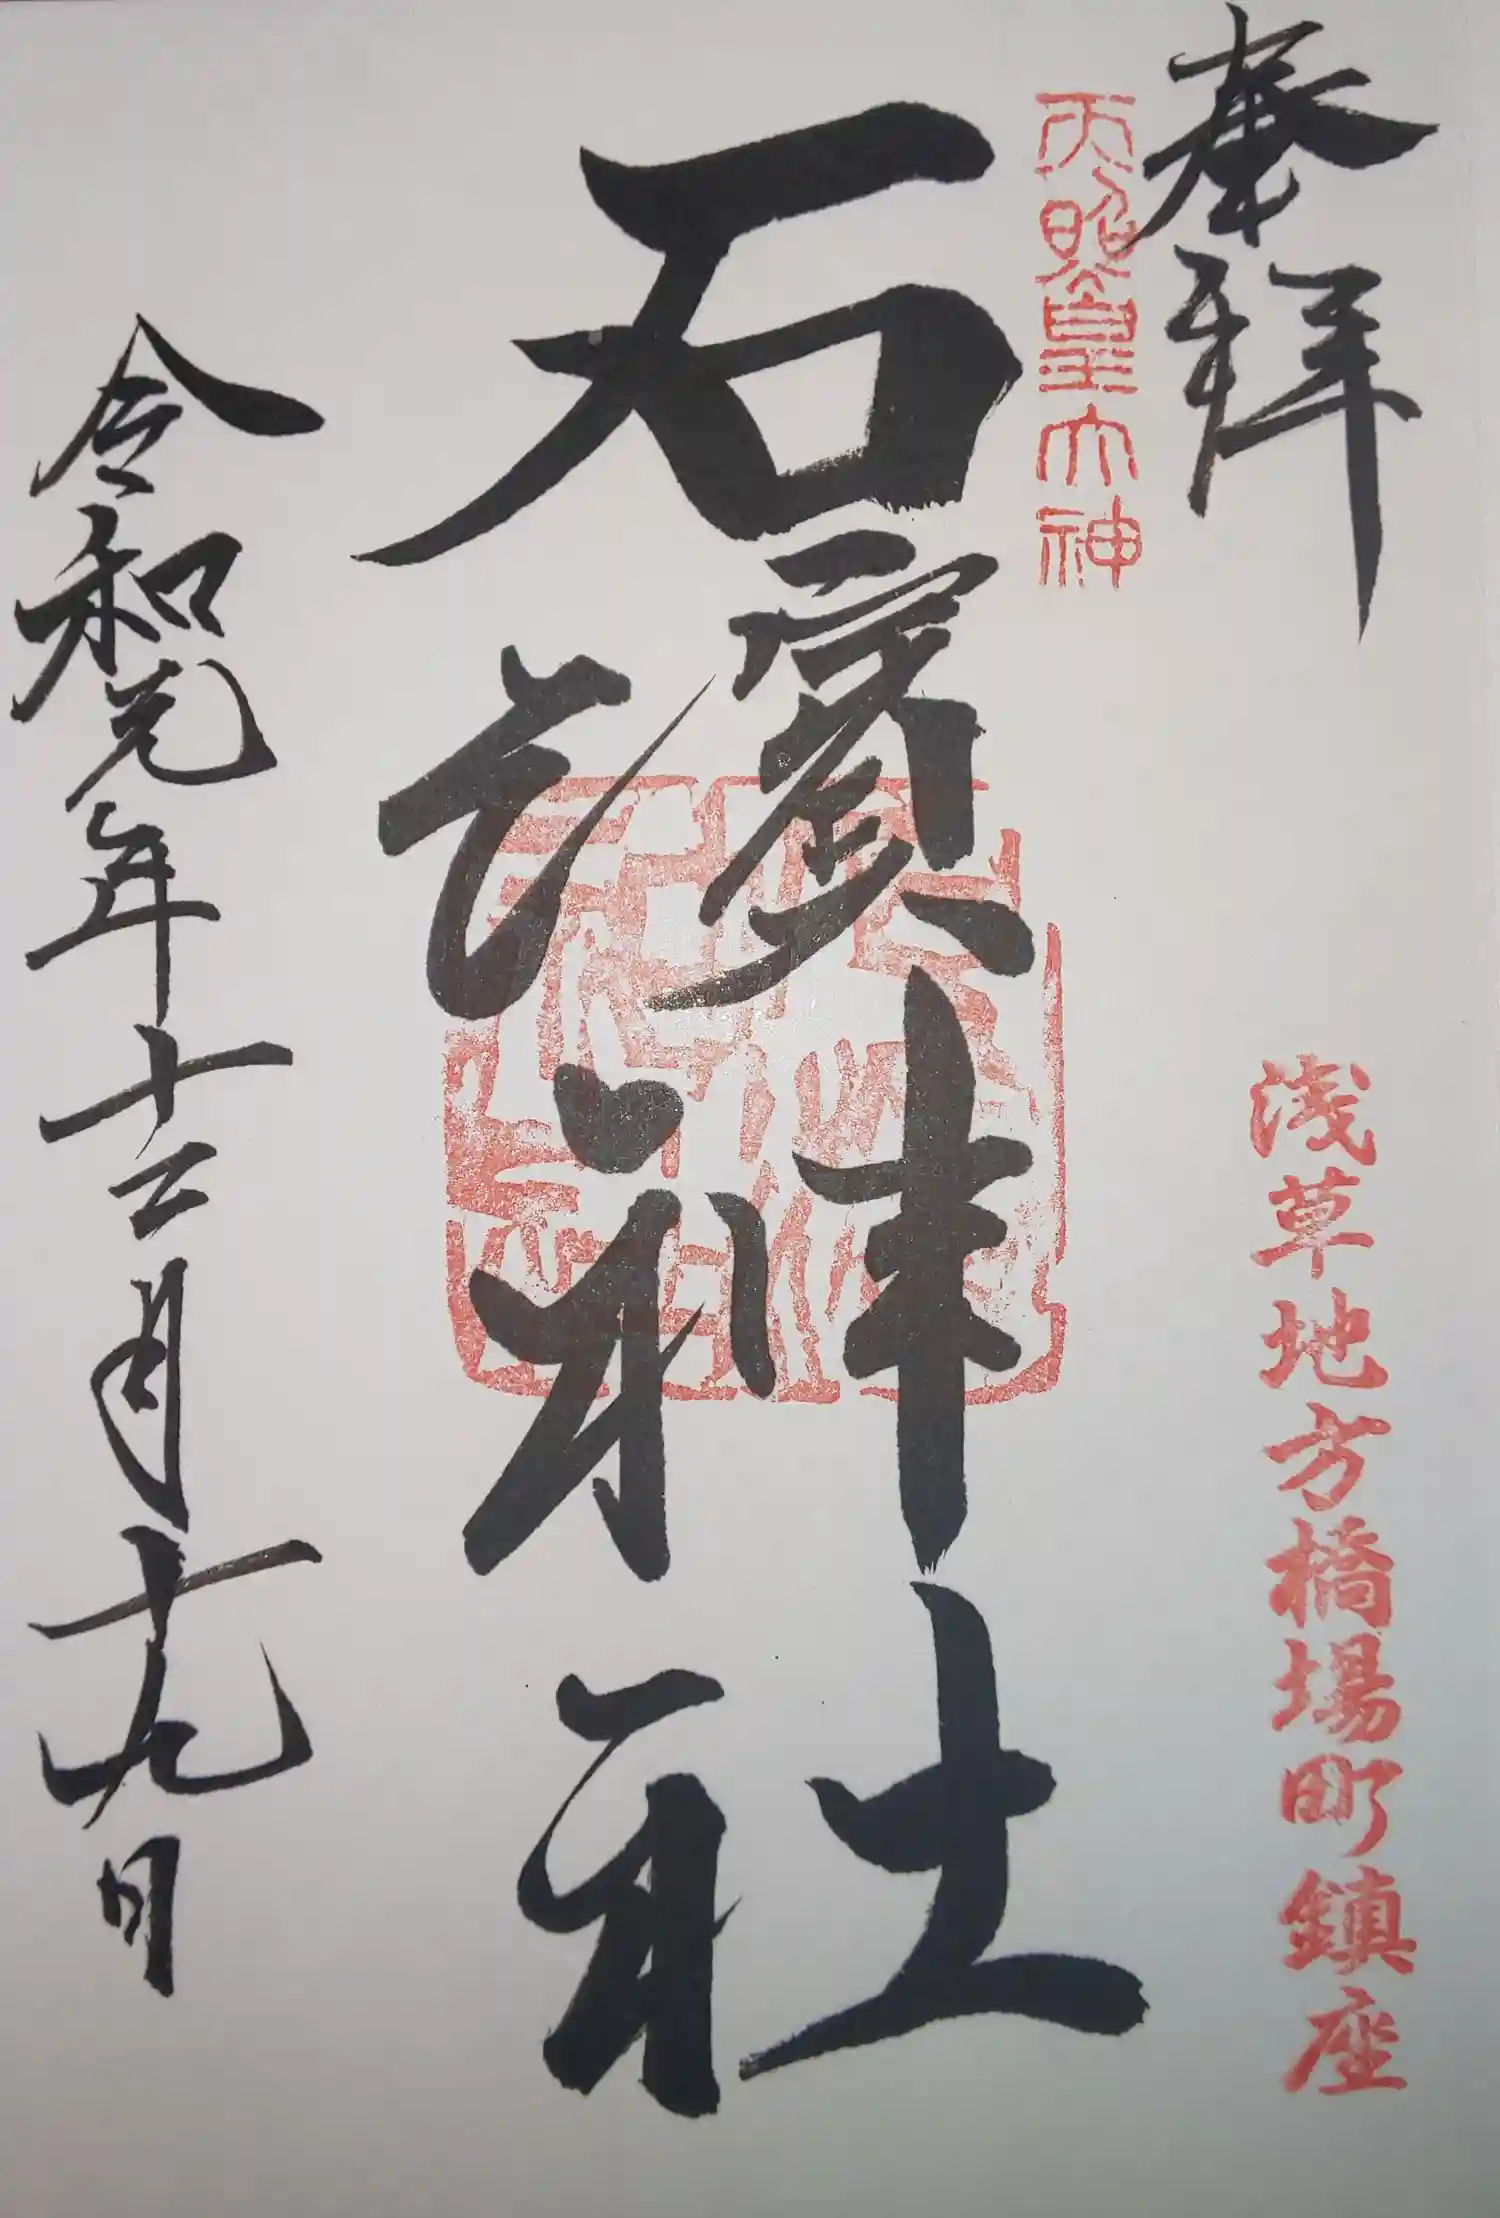 奉拝
浅草地方橋場町鎮座
天照皇大神
石濱神社
令和元年十二月十九日